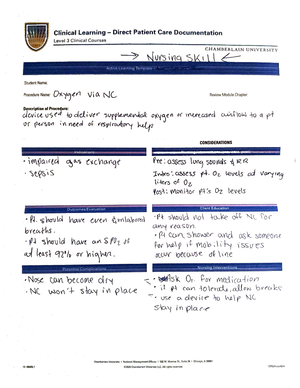 Clinical Learning – Direct Patient Care Documentation
Level 3 Clinical Courses
CHAMBERLAIN UNIVERSITY
→ Nursing Skill ←
Active Learning Template
Student Name:
Procedure Name: Oxygen via NC
Review Module Chapter:
Description of Procedure:
device used to deliver supplemental oxygen or increased airflow to a pt
or person in need of respiratory help
CONSIDERATIONS
Indications
• impaired gas exchange
• sepsis
Pre: assess lung sounds & RR
Intra: assess pt. O2 levels at varying
liters of O2
Post: monitor pt's O2 levels
Outcomes/Evaluation
• Pt should have even & unlabored
breaths.
• Pt should have an SPO2 of
at least 92% or higher.
Client Education
• Pt should not take off NC for
any reason
• Pt can shower and ask someone
for help if mobility issues
occur because of line
Potential Complications
• Nose can become dry
• NC won't stay in place
Nursing Interventions
• Ask Dr. for medication
• if pt can tolerate, allow breaks
• use a device to help NC
stay in place